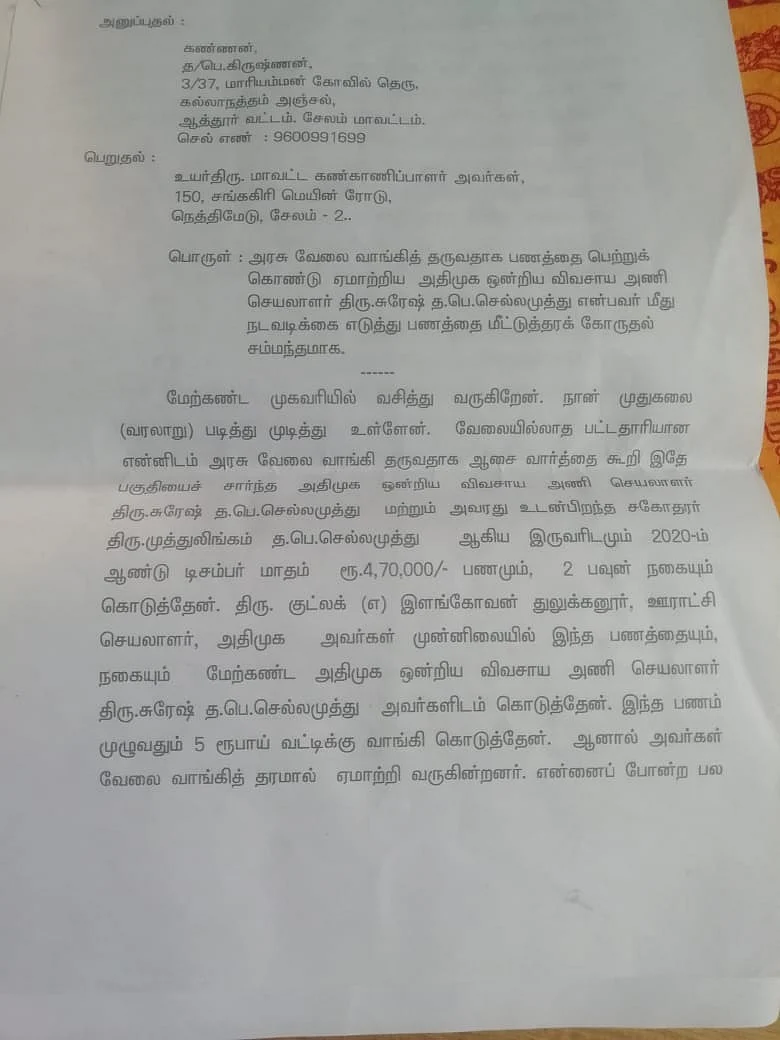 அனுப்புதல் :
கண்ணன்,
த/பெ.கிருஷ்ணன்,
3/37, மாரியம்மன் கோவில் தெரு,
கல்லாநத்தம் அஞ்சல்,
ஆத்தூர் வட்டம். சேலம் மாவட்டம்.
செல் எண் : 9600991699
பெறுதல் :
உயர்திரு. மாவட்ட கண்காணிப்பாளர் அவர்கள்,
150, சங்ககிரி மெயின் ரோடு,
நெத்திமேடு, சேலம் - 2..
பொருள் : அரசு வேலை வாங்கித் தருவதாக பணத்தை பெற்றுக்
கொண்டு ஏமாற்றிய அதிமுக ஒன்றிய விவசாய அணி
செயலாளர் திரு.சுரேஷ் த.பெ.செல்லமுத்து என்பவர் மீது
நடவடிக்கை எடுத்து பணத்தை மீட்டுத்தரக் கோருதல்
சம்மந்தமாக.
------
மேற்கண்ட முகவரியில் வசித்து வருகிறேன். நான் முதுகலை
(வரலாறு) படித்து முடித்து உள்ளேன். வேலையில்லாத பட்டதாரியான
என்னிடம் அரசு வேலை வாங்கி தருவதாக ஆசை வார்த்தை கூறி இதே
பகுதியைச் சார்ந்த அதிமுக ஒன்றிய விவசாய அணி செயலாளர்
திரு.சுரேஷ் த.பெ.செல்லமுத்து மற்றும் அவரது உடன்பிறந்த சகோதரர்
திரு.முத்துலிங்கம் த.பெ.செல்லமுத்து ஆகிய இருவரிடமும் 2020-ம்
ஆண்டு டிசம்பர் மாதம் ரூ.4,70,000/- பணமும், 2 பவுன் நகையும்
கொடுத்தேன். திரு. குட்லக் (எ) இளங்கோவன் துலுக்கனூர், ஊராட்சி
செயலாளர், அதிமுக அவர்கள் முன்னிலையில் இந்த பணத்தையும்,
நகையும் மேற்கண்ட அதிமுக ஒன்றிய விவசாய அணி செயலாளர்
திரு.சுரேஷ் த.பெ.செல்லமுத்து அவர்களிடம் கொடுத்தேன். இந்த பணம்
முழுவதும் 5 ரூபாய் வட்டிக்கு வாங்கி கொடுத்தேன். ஆனால் அவர்கள்
வேலை வாங்கித் தரமால் ஏமாற்றி வருகின்றனர். என்னைப் போன்ற பல